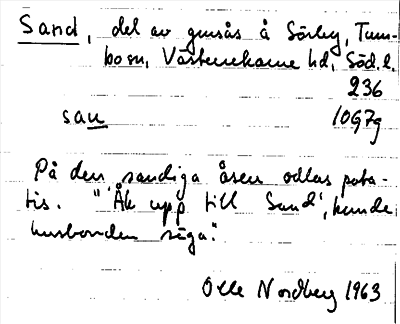 Sand, del av grusås å Sörby, Tum-
bo sn, Västerrekarne hd, Söd. l.
236
san 10G7g
På den sandiga åsen odlas pota-
tis. "Åk upp till Sand", kunde
husbonden säga."
Olle Nordberg 1963